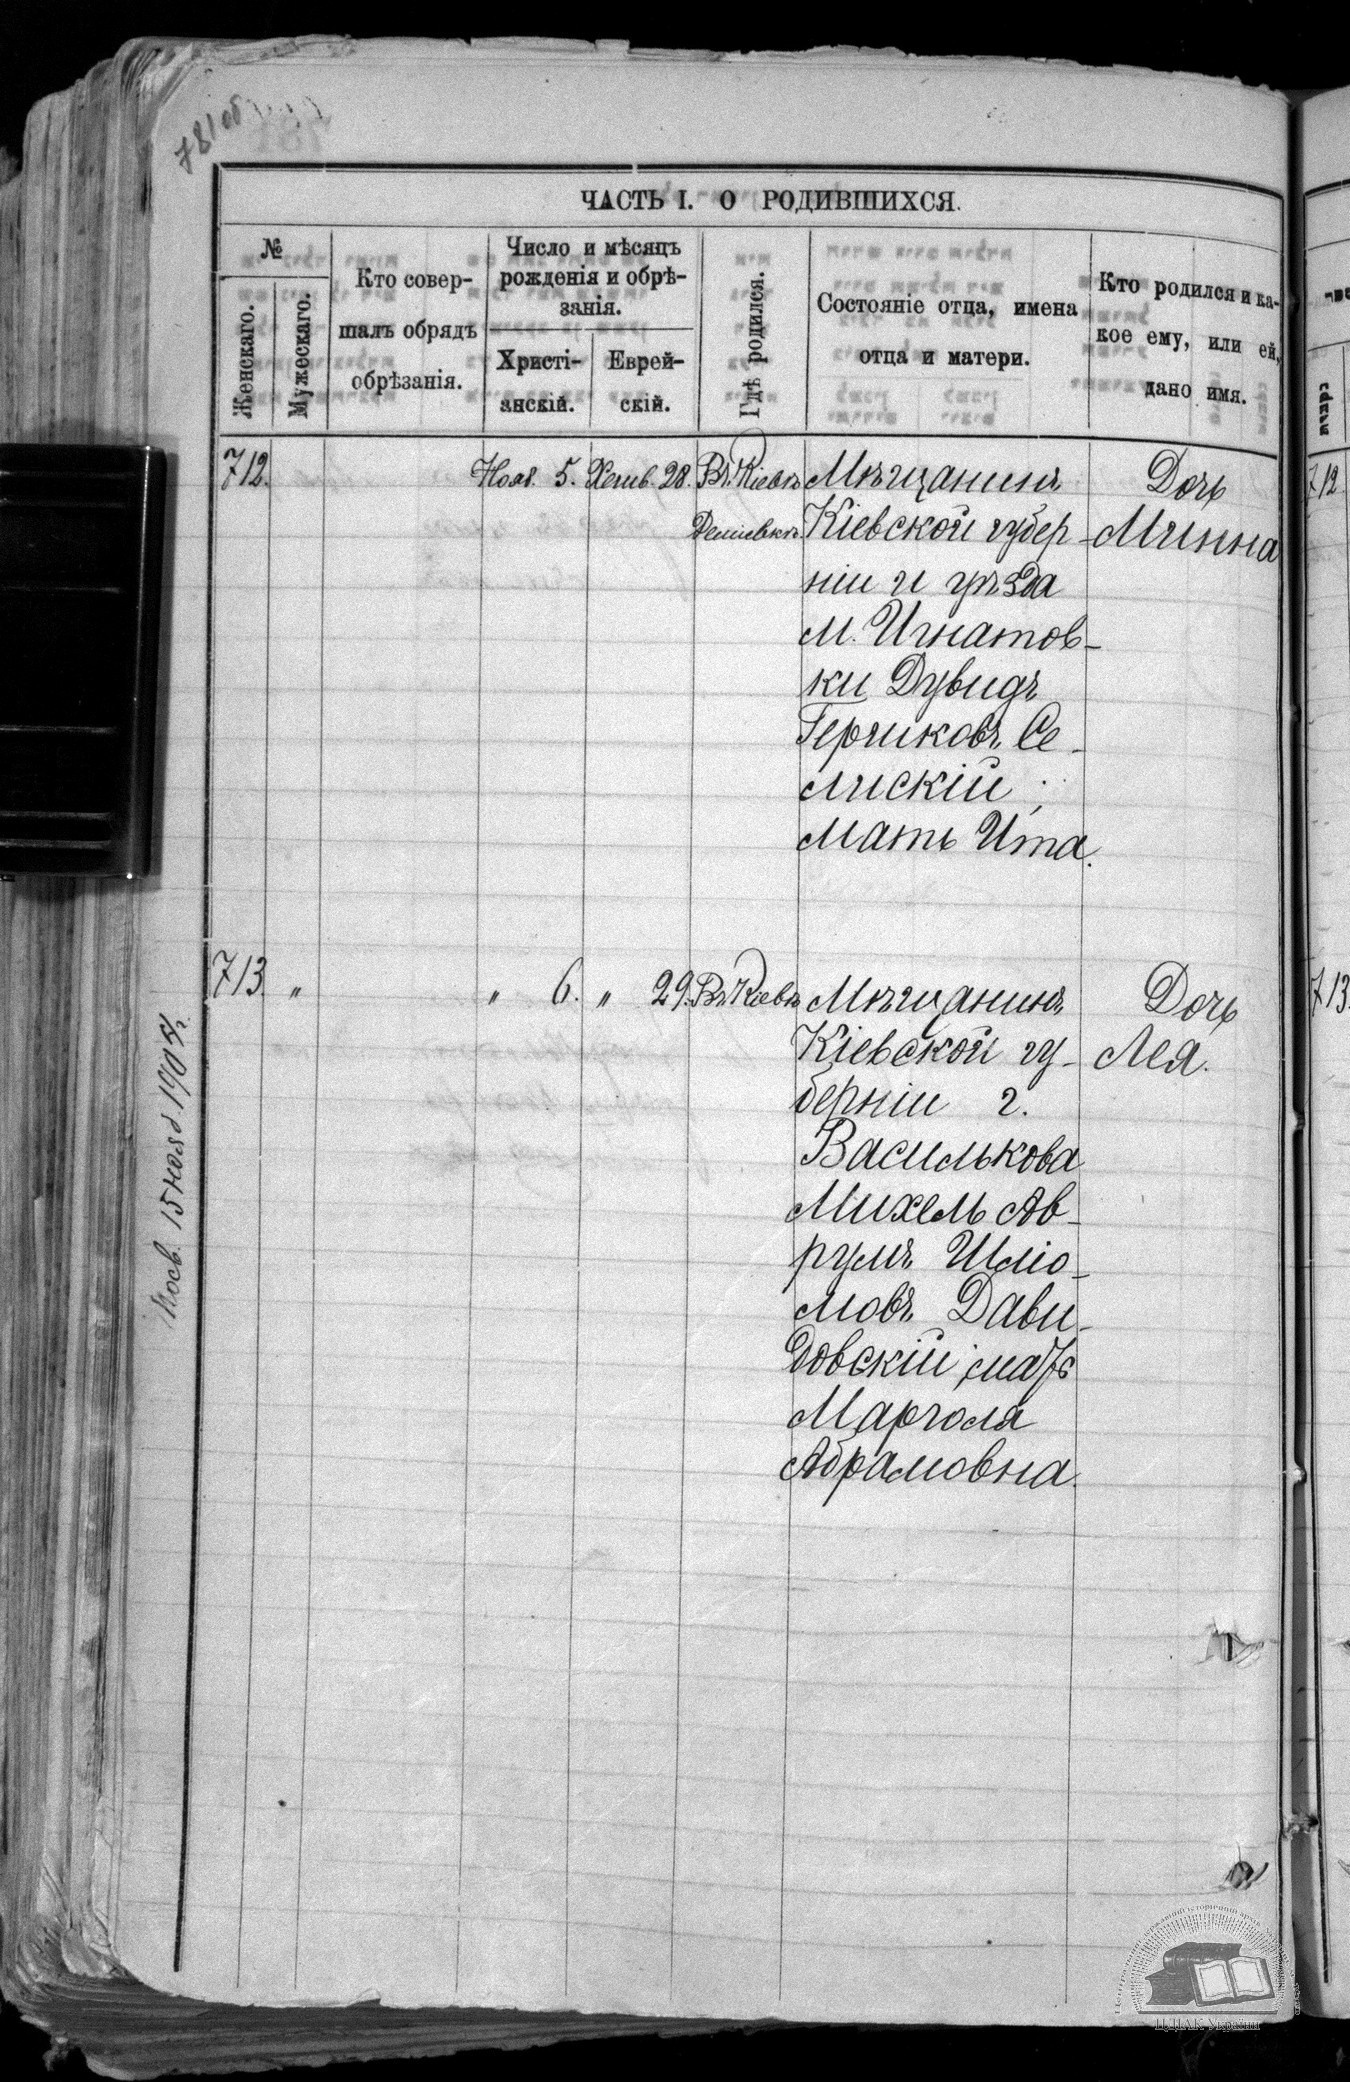 781об
ЧАСТЬ I. О РОДИВШИХСЯ.
№
Женскаго.
Мужескаго.
Кто совер-
шалъ обрядъ
обрѣзанія.
Число и мѣсяцъ
рожденія и обрѣ-
занія.
Христі-
анскій.
Еврей-
скій.
Гдѣ родился.
Состояніе отца, имена
отца и матери.
Кто родился и ка-
кое ему, или ей,
дано имя.
712.
Нояб. 5.
Хешв. 28.
Въ Кіевѣ
Деміевкѣ
Мѣщанинъ
Кіевской губер-
ніи и уѣзда
м. Игнатов-
ки Дувидъ
Герчиковъ Се-
лискій;
мать Ита.
Дочь
Минна
712
713.
"
" 6.
" 29.
Въ Кіевѣ
Мѣщанинъ
Кіевской гу-
берніи г.
Василькова
Михель Ав-
румъ Шлiо-
мовъ Дави-
довскій; мать
Марголя
Абрамовна.
Дочь
Лея.
713.
15 нояб 1904 г.
ЦДІАК України